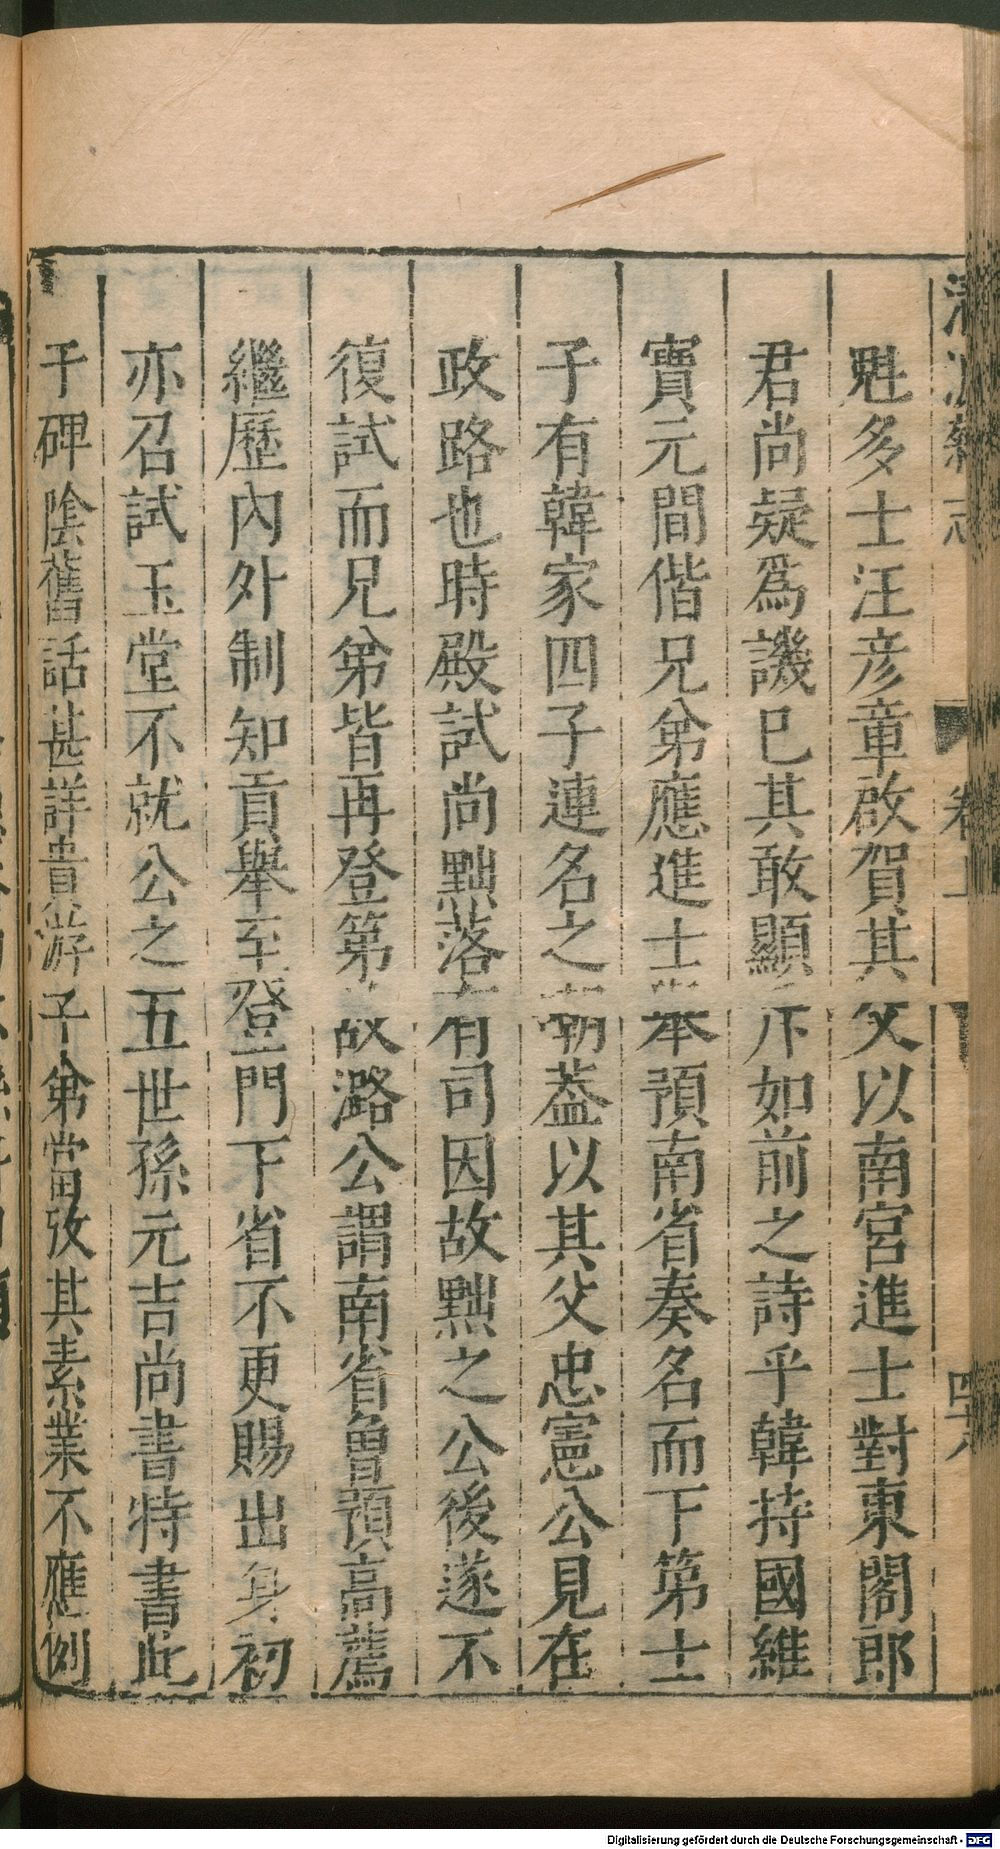 魁多士汪彦章啟賀其父以南宮進士對東閣郎
君尚疑爲譏已其敢顯斥如前之詩乎韓持國維
寳元間偕兄弟應進士舉預南省奏名而下第士
子有韓家四子連名之嘲葢以其父忠憲公見在
政路也時殿試尚黜落有司因故黜之公後遂不
復試而兄弟皆再登第故潞公謂南省曾預高薦
繼歷內外制知貢舉至登門下省不更賜出身初
亦召試玉堂不就公之五世孫元吉尚書特書此
于碑陰舊話甚詳貴游子弟當攷其素業不應例
清波雜志
卷上
四八
Digitalisierung gefördert durch die Deutsche Forschungsgemeinschaft - DFG